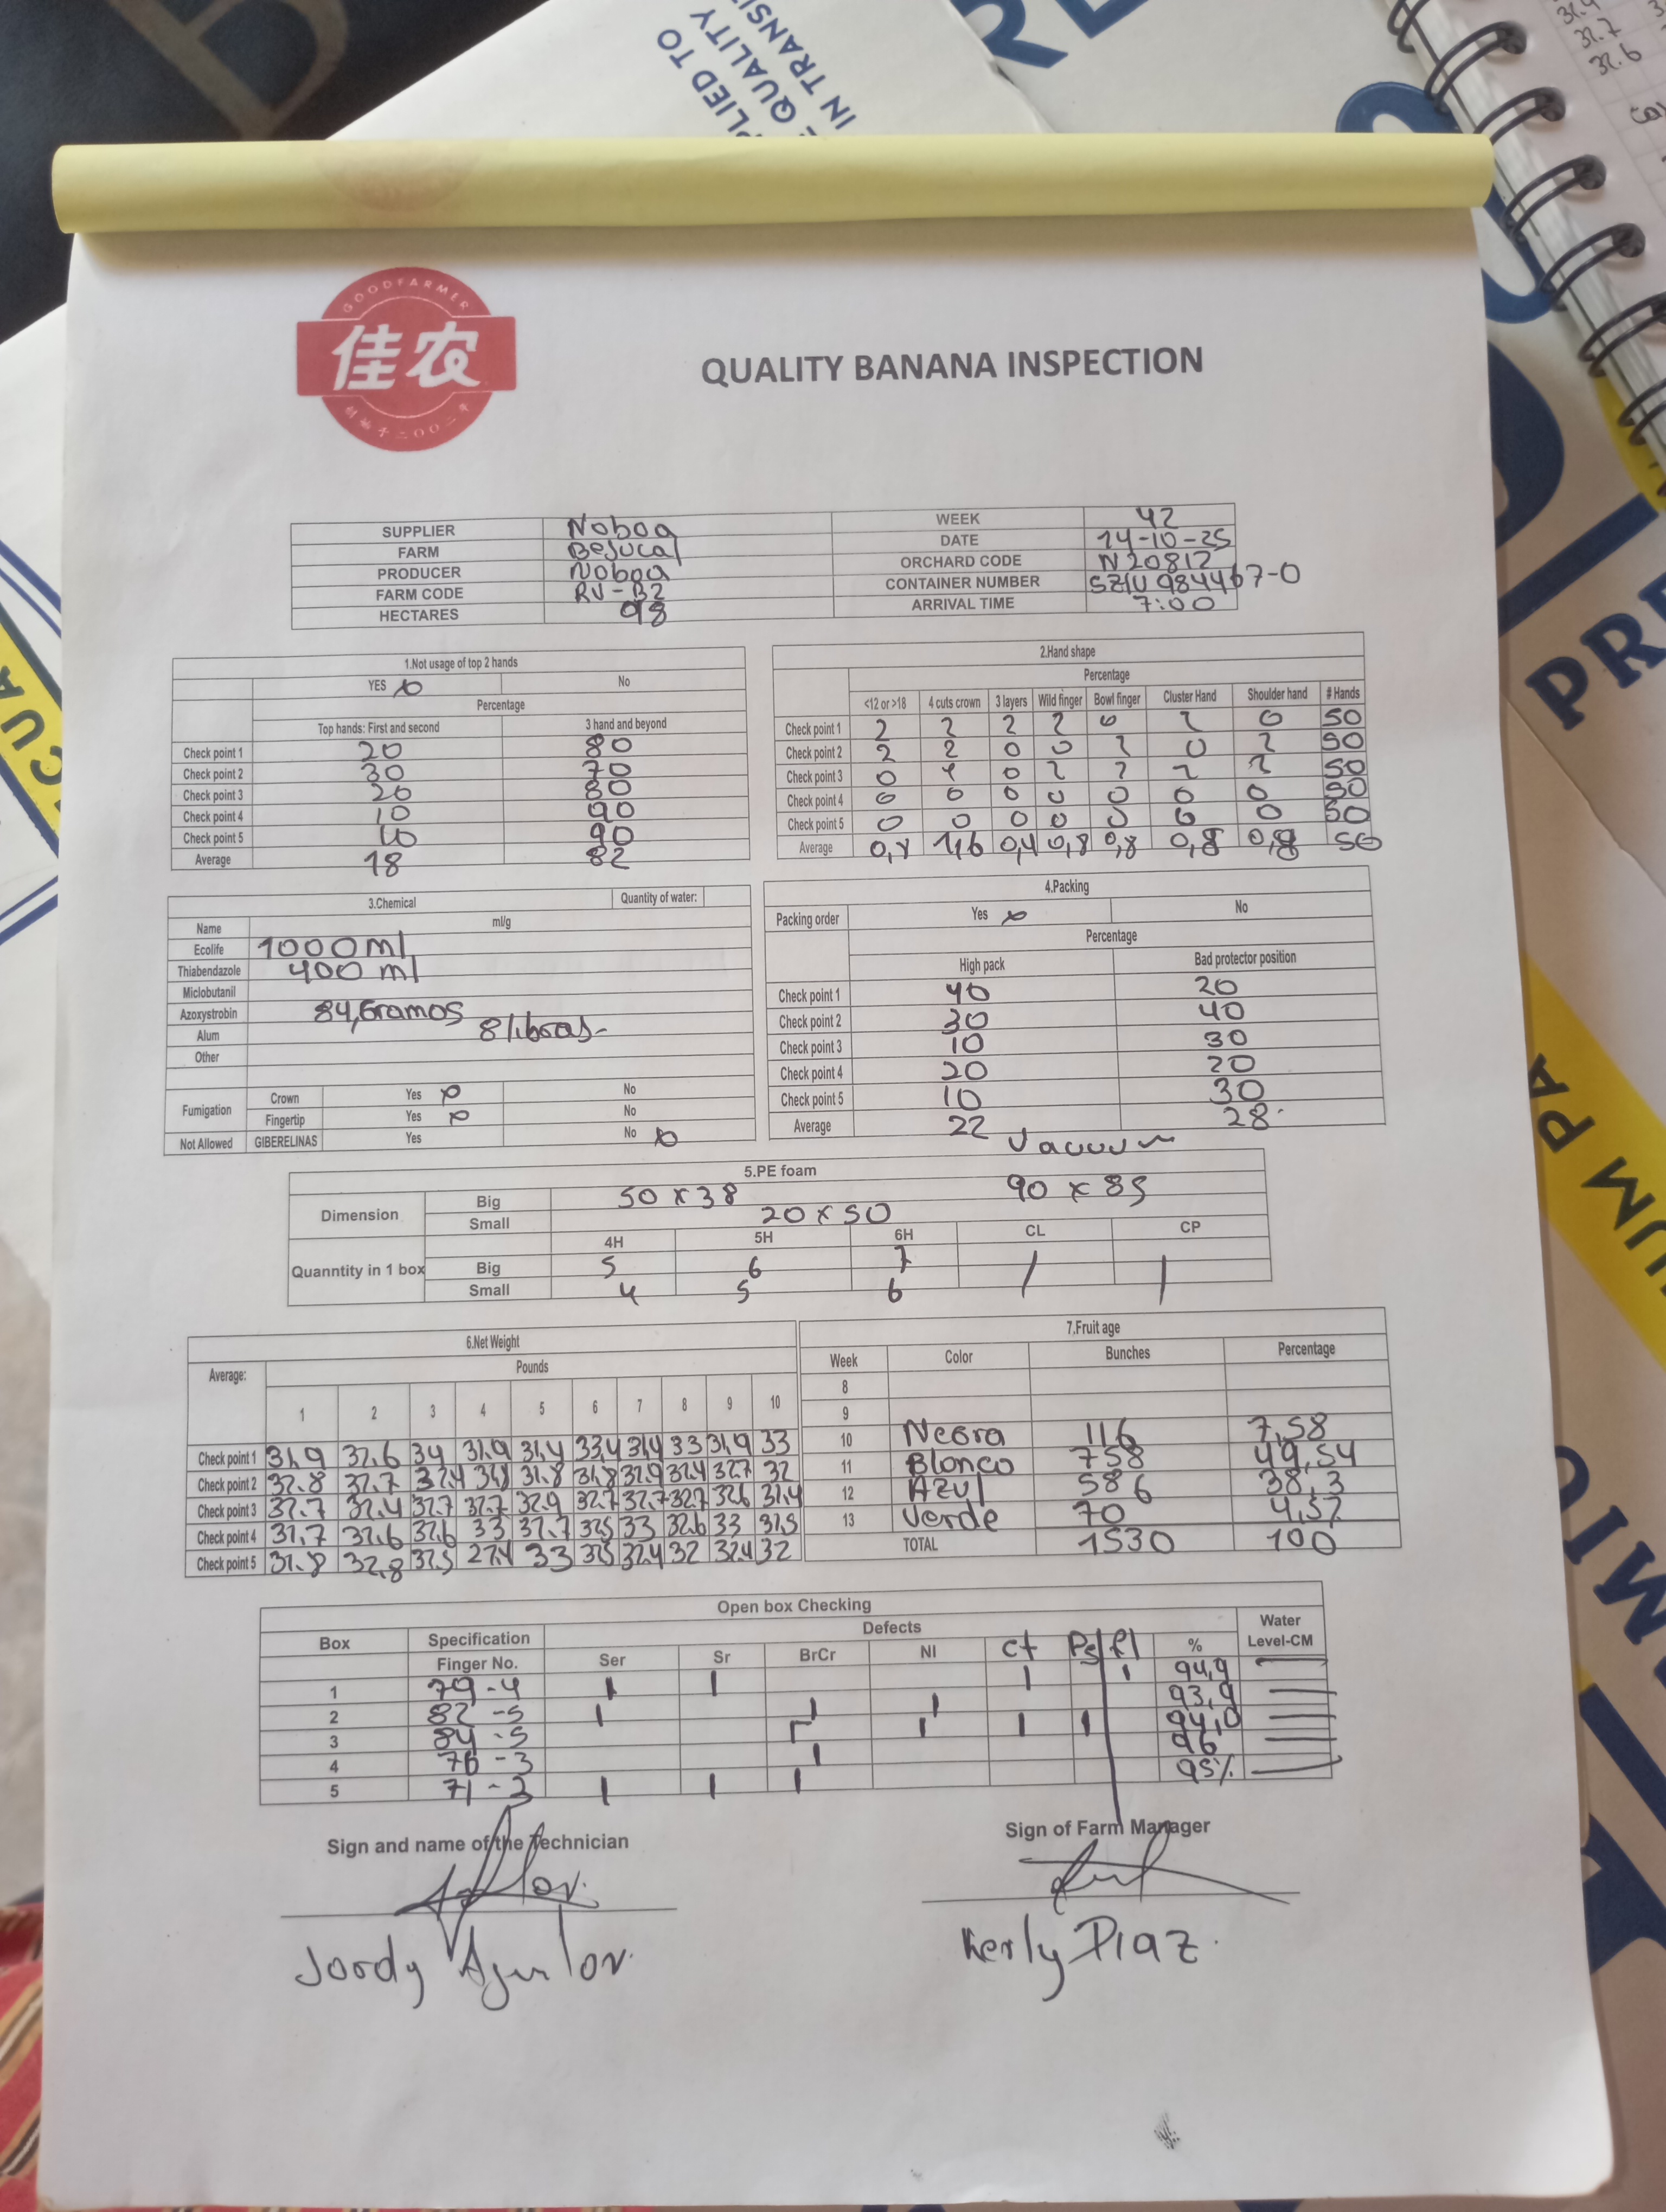 PLIED TO
E QUALITY
IN TRANSI
32.7
32.6
GOODFARMER
佳农
创始于二〇〇二年
QUALITY BANANA INSPECTION
SUPPLIER Noboa WEEK 42
FARM Bejucal DATE 14-10-25
PRODUCER Noboa ORCHARD CODE N20812
FARM CODE RV-B2 CONTAINER NUMBER
HECTARES 98 ARRIVAL TIME 7:00
1.Not usage of top 2 hands
YES No
Percentage
Top hands: First and second 3 hand and beyond
Check point 1 20 80
Check point 2 30 70
Check point 3 20 80
Check point 4 10 90
Check point 5 10 90
Average 18 82
2.Hand shape
Percentage
<12 or >18 4 cuts crown 3 layers Wild finger Bowl finger Cluster Hand Shoulder hand # Hands
Check point 1 2 2 2 2 0 2 0 50
Check point 2 2 2 0 0 2 0 2 50
Check point 3 0 4 0 2 2 2 2 50
Check point 4 0 0 0 0 0 0 0 50
Check point 5 0 0 0 0 0 0 0 50
Average 1,6 0,4 0,8 0,8 0,8 0,8 50
3.Chemical Quantity of water:
Name ml/g
Ecolife 1000 ml
Thiabendazole 400 ml
Miclobutanil
Azoxystrobin 84,Gramos
Alum 8 libras-
Other
Fumigation Crown Yes No
Fingertip Yes No
Not Allowed GIBERELINAS Yes No
4.Packing
Packing order Yes No
Percentage
High pack Bad protector position
Check point 1 40 20
Check point 2 30 40
Check point 3 10 30
Check point 4 20 20
Check point 5 10 30
Average 22 28
Vacuum
5.PE foam
Dimension Big 50 x 38 90 x 85
Small 20 x 50
4H 5H 6H CL CP
Quanntity in 1 box Big 5 6 7 /
Small 4 5 6
6.Net Weight
Average: Pounds
1 2 3 4 5 6 7 8 9 10
Check point 1 31,9 32.6 34 31,9 31,4 33,4 31,4 33 31,9 33
Check point 2 32.8 32.7 32,4 31,8 31,8 32,9 32,4 32,7 32
Check point 3 32.7 32.4 32,7 32,7 32,9 32,7 32,7 32,7 32,6 32,4
Check point 4 32,7 32,6 32,6 33 32,7 32,5 33 32,6 33 32,5
Check point 5 32.8 32,8 32,5 27,4 33 32,4 32 32,4 32
7.Fruit age
Week Color Bunches Percentage
8
9
10 Negra 116 7,58
11 Blanco 758 49,54
12 Azul 586 38,3
13 Verde 70
TOTAL 1530 100
Open box Checking
Box Specification Defects Water
Finger No. Ser Sr BrCr NI Ct Ps fl % Level-CM
1 79-4 | | | | 94,9
2 82-5 | | | 93,9
3 84-5 | | | 94,0
4 76-3 | 96
5 71-3 | | | 95%
Sign and name of the Technician Sign of Farm Manager
Jordy Aguilar. Kerly Diaz.